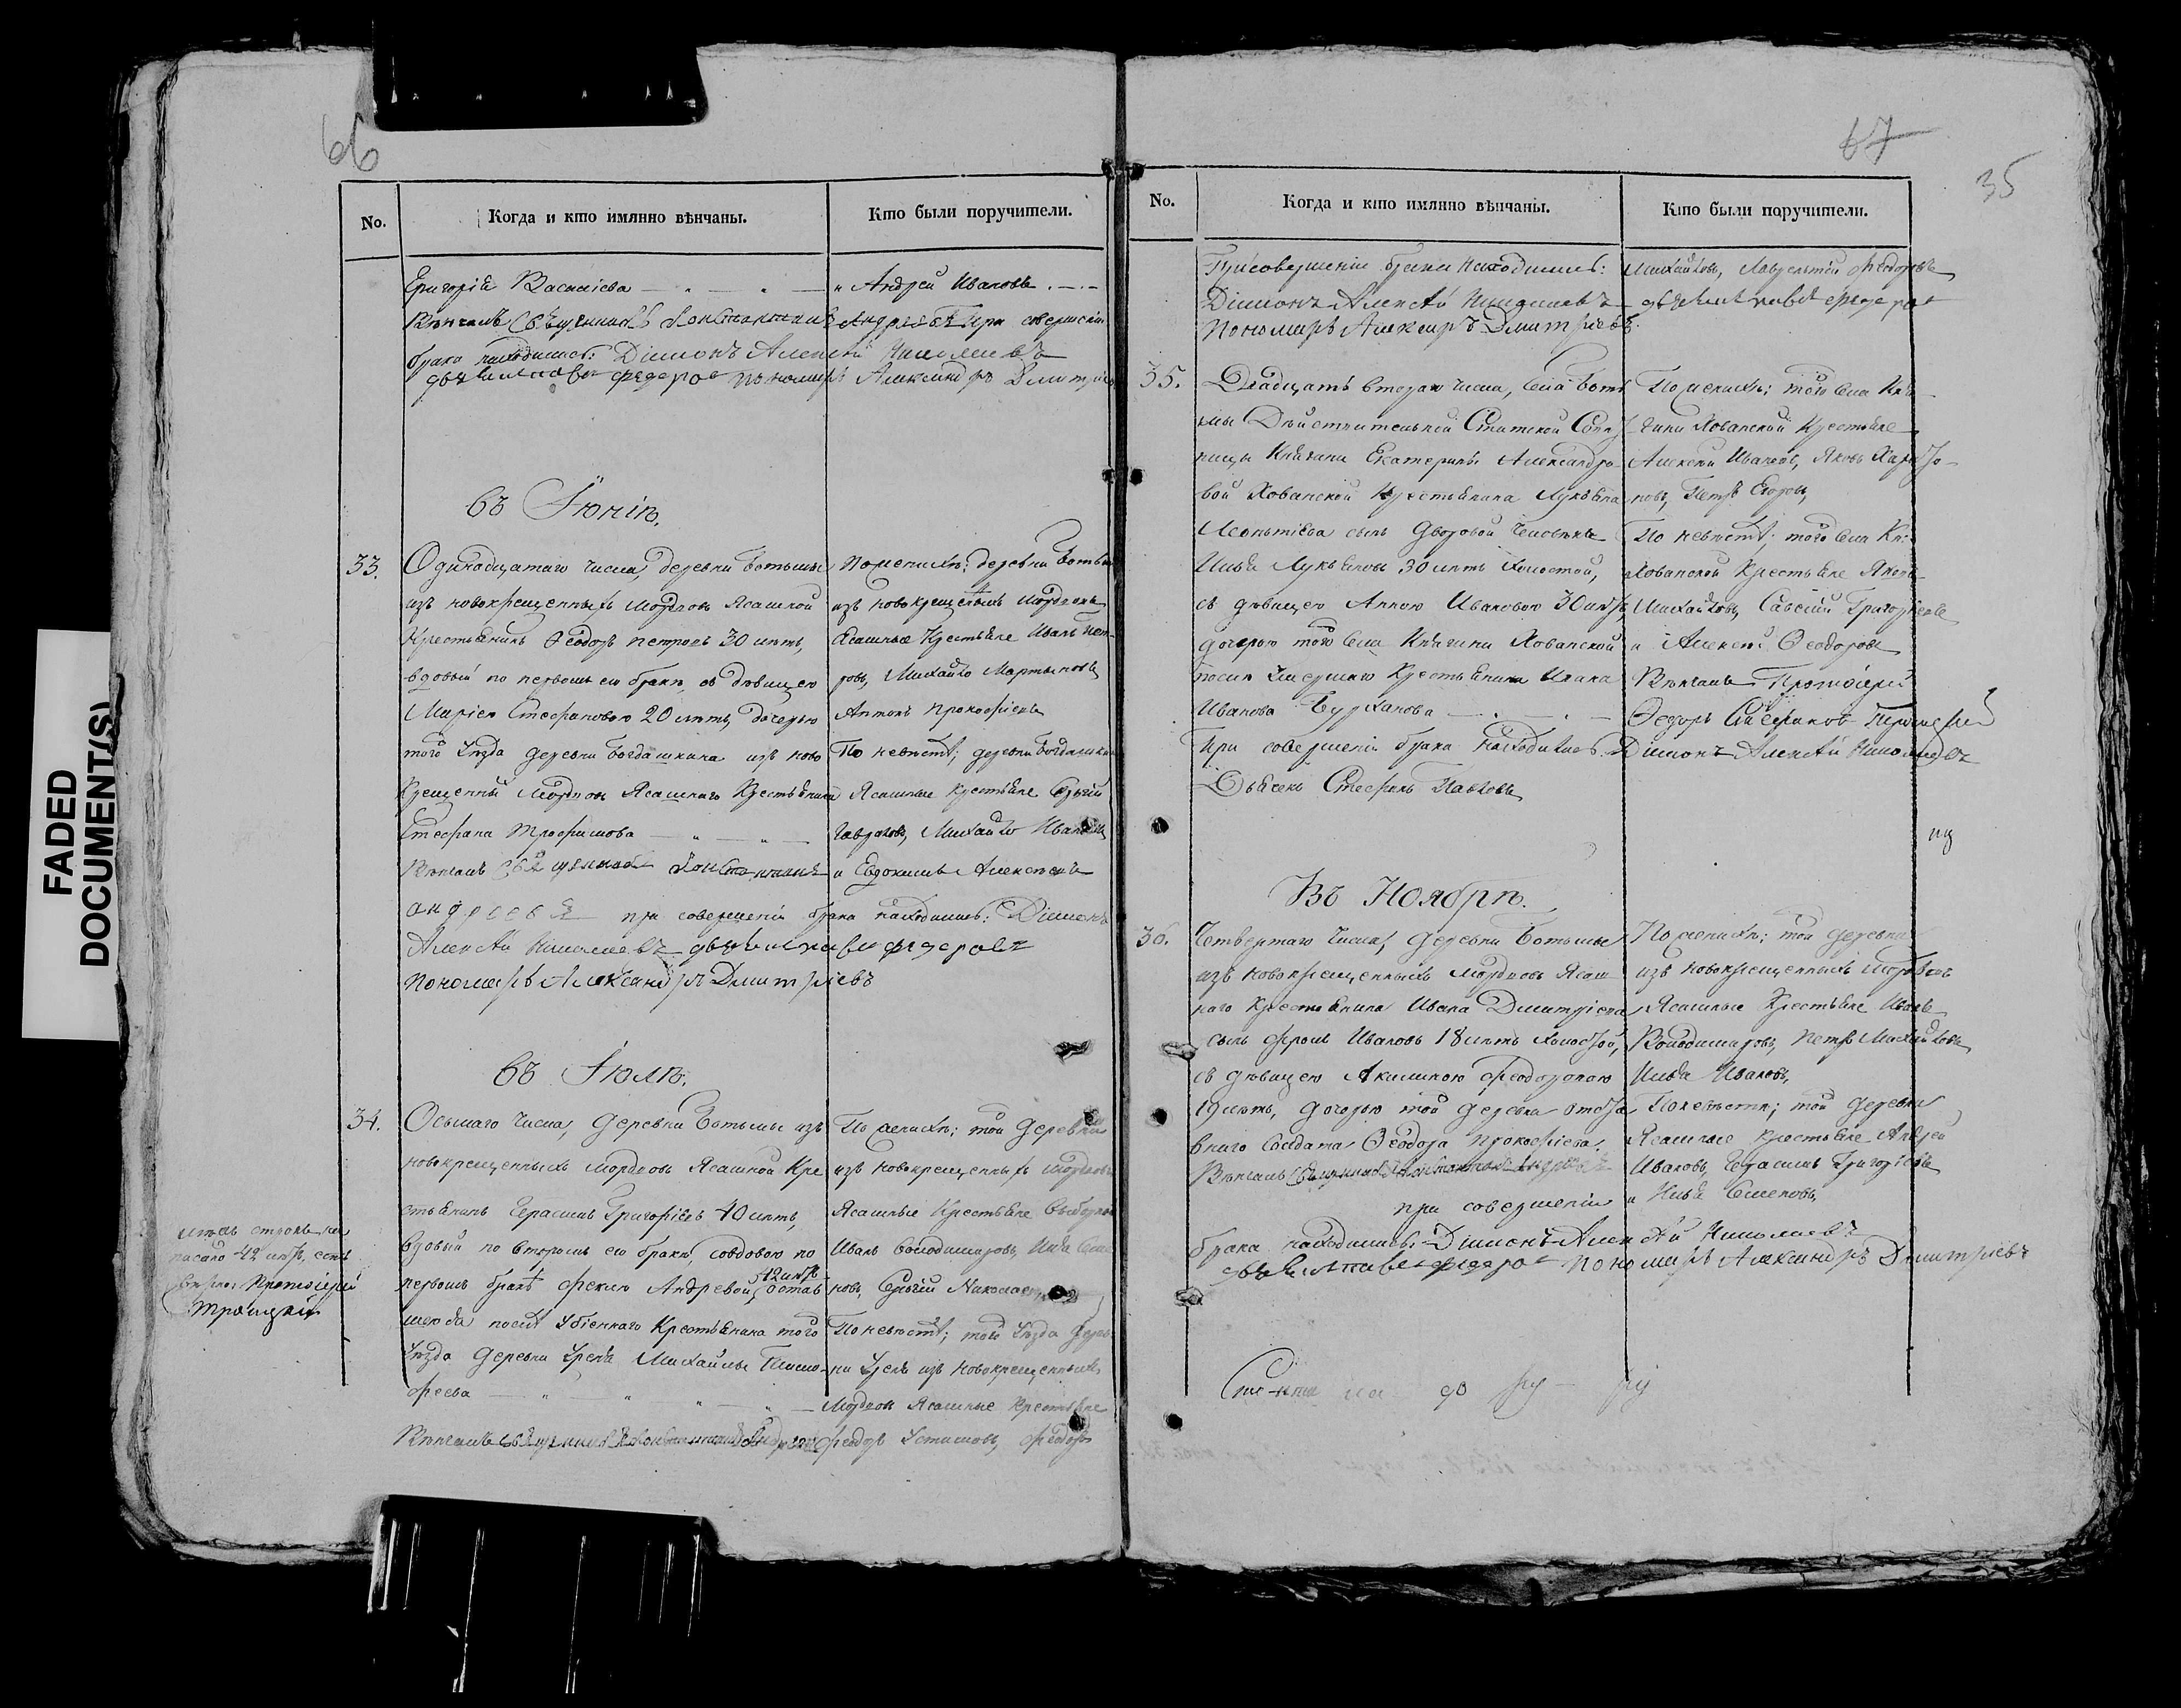 66
No.
Когда и кто имянно вѣнчаны.
Кто были поручители.
Григорій Василіева
и Андрей Ивановъ
Вѣнчалъ Священникъ Константинъ Андреевъ При совершеніи
брака находились: Діаконъ Алексѣй Николаевъ
Федоровъ пономарь Александръ Дмитріевъ
въ Іюнѣ,
33.
Одинадцатаго числа, деревни Ботьмы
изъ новокрещенныхъ мордовъ Ясашной
Крестьянинъ Ѳеодоръ Петровъ 30 лѣтъ,
вдовый по первомъ ею бракѣ, съ дѣвицею
Маріею Стефановою 20 лѣтъ, дочерью
того Уѣзда деревни Богдашкина изъ ново
крещенны мордовъ Ясашнаго Крестьянина
Стефана Трофимова
Вѣнчалъ Священникъ Константинъ
Андреевъ при совершеніи брака находились: Діаконъ
Алексѣй Николаевъ Федоровъ
пономарь Александръ Дмитріевъ
По женихѣ; деревни Ботьмы
изъ новокрещеныхъ мордовъ
Ясашные Крестьяне Иванъ Пет-
ровъ, Михайло Мартыновъ
Антонъ Прокофьевъ
По невѣстѣ; деревни Богдашкина
Ясашные крестьяне Сергій
Михайло Ивановъ
и Евдокимъ Алексѣевъ
въ Іюлѣ,
34.
Осьмаго числа, деревни Ботьмы изъ
новокрещенныхъ мордовъ Ясашной Кре
стьянинъ Герасимъ Григорьевъ 40 лѣтъ,
вдовый по второмъ ею бракѣ, со вдовою по
42 лѣтъ
первомъ бракѣ Феклою Андревой, остав
шеюся послѣ Убіеннаго Крестьянина того
Уѣзда деревни Уреня Михайлы Тимо-
феева
Вѣнчалъ Священникъ Константинъ Андреевъ
По женихѣ; той деревни
изъ новокрещенныхъ мордовъ
Ясашные Крестьяне
Иванъ Володимировъ, Илья Семе
новъ, Сергій Николаевъ
По невѣстѣ; того Уѣзда дерев-
ни Урень изъ новокрещенныхъ
Мордовъ Ясашные Крестьяне
Феодоръ Устимовъ, Феодоръ
межъ строкъ на
писано 42 лѣтъ, есть
вѣрно: Протоіерей
Троицкій
67
35
No.
Когда и кто имянно вѣнчаны.
Кто были поручители.
При совершеніи брака находились:
Діаконъ Алексѣй Николаевъ
Пономарь Александръ Дмитріевъ.
Михайловъ, Лаврентій Феодоровъ
Федоровъ
35.
Двадцать втораго числа, села Боть
мы Дѣйствительной Статской Совѣт
ницы Княгини Екатерины Александро
вой Хованской Крестьянина Лукьяна
Леонтьева сынъ дворовой человѣкъ
Илья Лукьяновъ 30 лѣтъ холостой,
съ дѣвицею Анною Ивановою 30 лѣтъ,
дочерью того села Княгини Хованской
послѣ умершаго Крестьянина Ивана
Иванова Бурханова
При совершеніи брака находились Діаконъ Алексѣй Николаевъ
Дьячекъ Стефанъ Павловъ
По женихѣ; того села Кня-
гини Хованской Крестьяне
Алексѣй Ивановъ, Яковъ Харито-
новъ, Петръ Егоровъ,
По невѣстѣ; того села Кн:
Хованской Крестьяне Яковъ
Михайловъ, Савелій Григорьевъ
и Алексѣй Ѳеодоровъ
Вѣнчалъ Протоіерей
Ѳедоръ
Въ Ноябрѣ.
36.
Четвертаго числа, деревни Ботьмы
изъ новокрещенныхъ мордовъ Ясаш
наго Крестьянина Ивана Дмитріева
сынъ Фролъ Ивановъ 18 лѣтъ холостой,
съ дѣвицею Акилиною Феодоровою
19 лѣтъ, дочерью той деревни отста
внаго Солдата Ѳеодора Прокофьева.
Вѣнчалъ Священникъ Константинъ Андреевъ
при совершеніи
брака находились: Діаконъ Алексѣй Николаевъ
Федоровъ Пономарь Александръ Дмитріевъ
По женихѣ; той деревни
изъ новокрещенныхъ мордовъ
Ясашные Крестьяне Иванъ
Володимировъ, Петръ Михайловъ
Илья Ивановъ,
По невѣстѣ; той деревни
Ясашные крестьяне Андрей
Ивановъ, Герасимъ Григорьевъ
и Илья Семеновъ,
FADED
DOCUMENT(S)